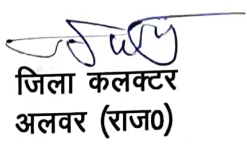 जिला कलक्टर
अलवर (राज0)